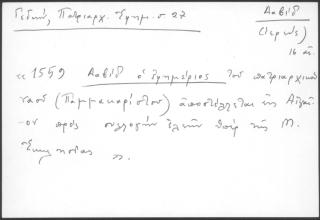 Γεδεών, Πατριαρχ. Εφημ. σ 27
Δαβίδ
(ἱερεὺς)
16 αι.
« 1559 Δαβίδ ὁ ἐφημέριος τοῦ πατριαρχικοῦ
ναοῦ (Παμμακαρίστου) ἀποστέλλεται εἰς Αἴγυπ-
ον πρὸς συλλογὴν ἐλεῶν ὑπὲρ τῆς Μ.
Ἐκκλησίας ».